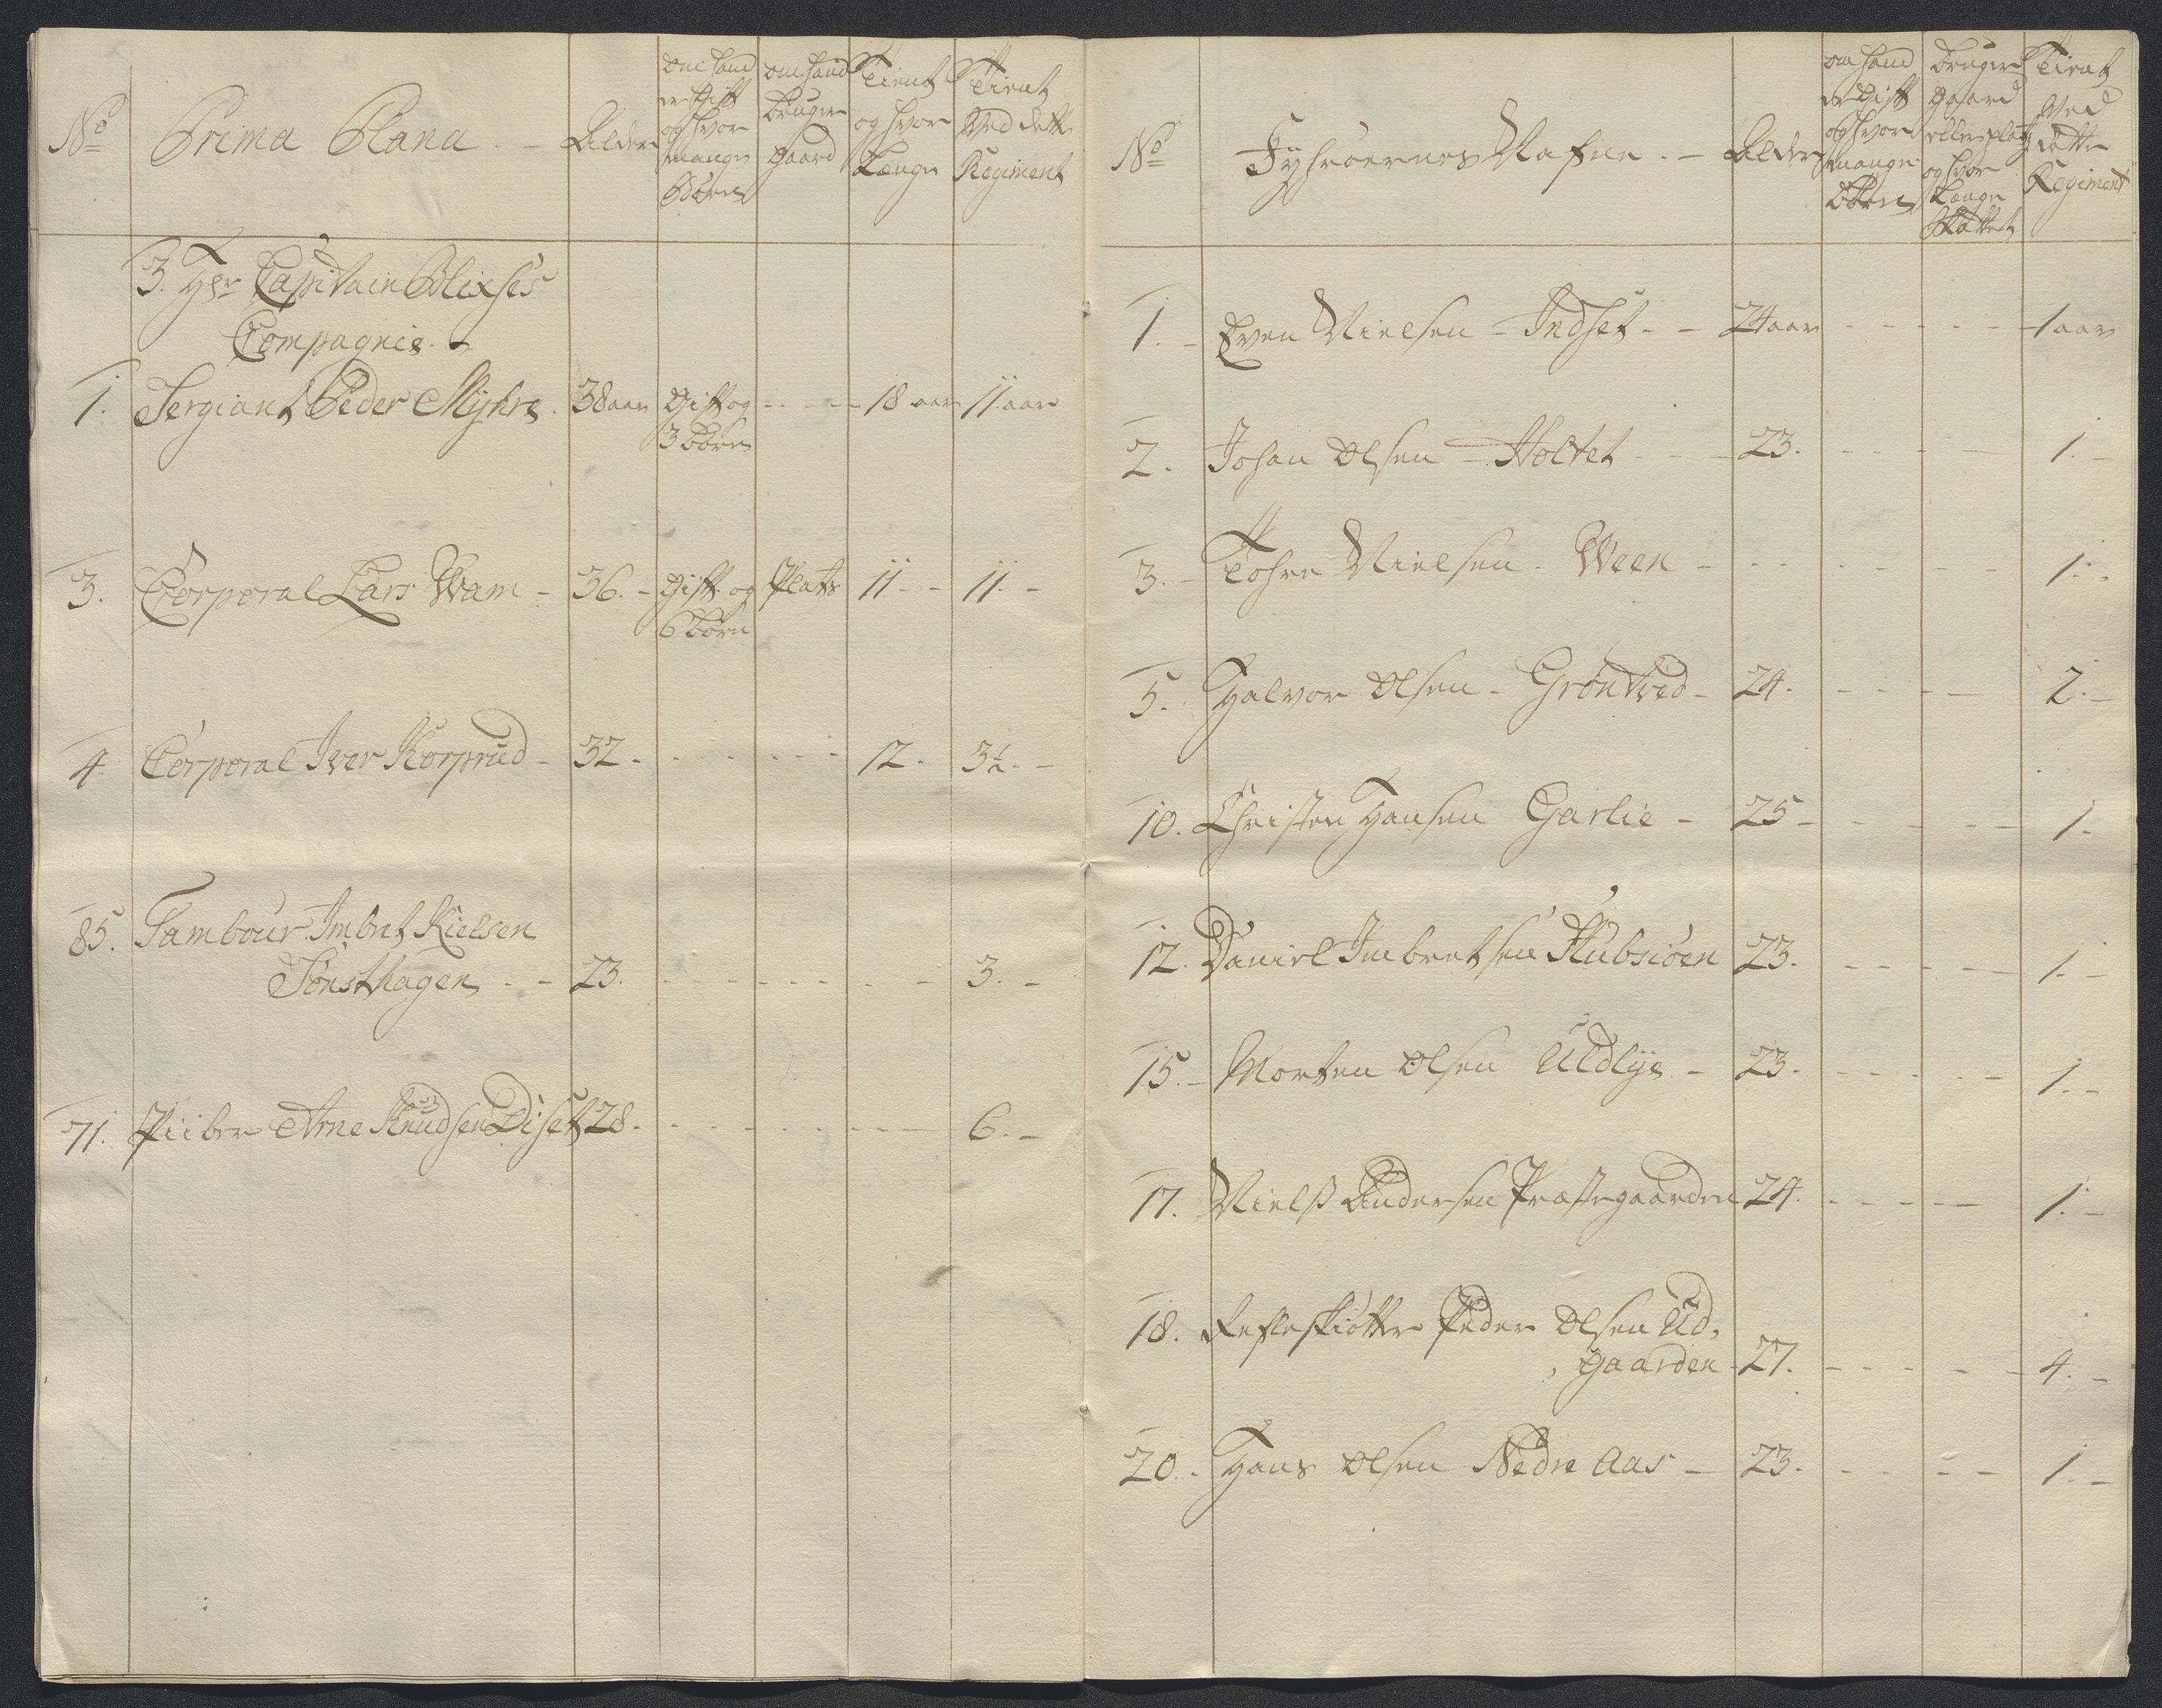 No
Prima Plana. -
Alder
om hand er Gift og hvor mange Börn
om hand bruger gaard
Tient og hvor Længe
Tient Ved dette Regiment
3. Hr Capitain Blixses
Compagnie.
1. Sergiant Peder Myhre. 38 aar Gift og - - - 18 aar 11. aar
3 Börn
3. Corporal Lars Wam - 36. - Gift og Plats 11. - - 11. -
6 börn
4. Corporal Iver Korprud - 32. - - - - - 12. 3½. -
85. Tambour Imbret Nielsen
Tönsthagen - - 23. - - - - - - 3. -
71. Piiber Arne Knudsen Diset 28. - - - - - - 6. -
No
Nafne. -
Alder
om hand er Gift og hvor mange Börn
bruger gaard eller plads og hvor Længe
Tient Ved dette Regiment
1. - Even Nielsen - Indset - - 24 aar - - - - - 1 aar
2. Johan Olsen - Holtet - - - 23. - - - - 1. -
3. - Tohre Nielsen. Ween - - - - - - - 1. -
5. Halvor Olsen - Gröntved - 24. - - - - 2. -
10. Christen Hansen Garlie - 25 - - - - - 1. -
12. Daniel Imbretsen Kubsiöen 23. - - - - 1. -
15. - Morten Olsen Uldlye - 23. - - - - - 1. -
17. Nielss Andersen Præstegaarden 24. - - - - 1. -
18. Peder Olsen Ud,
, gaarden - 27. - - - - - 4. -
20. - Hans Olsen Nedre Aas - 23. - - - - 1. -